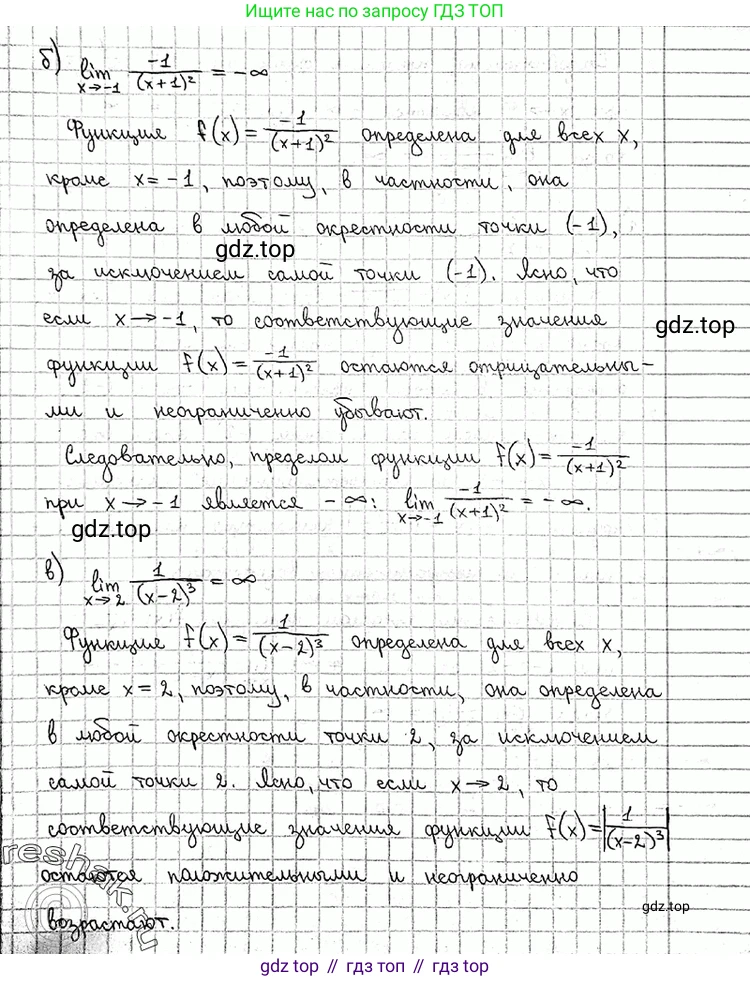 Ищите нас по запросу ГДЗ ТОП
б) lim x→-1 -1/(x+1)² = -∞
Функция f(x) = -1/(x+1)² определена для всех x,
кроме x = -1, поэтому, в частности, она
определена в любой окрестности точки (-1),
gdz.top
за исключением самой точки (-1). Ясно, что
если x → -1, то соответствующие значения
gdz.top
функции f(x) = -1/(x+1)² остаются отрицательны-
ми и неограниченно убывают.
Следовательно, пределом функции f(x) = -1/(x+1)²
при x → -1 является -∞: lim x→-1 -1/(x+1)² = -∞.
gdz.top
в) lim x→2 1/(x-2)³ = ∞
Функция f(x) = 1/(x-2)³ определена для всех x,
кроме x = 2, поэтому, в частности, она определена
в любой окрестности точки 2, за исключением
самой точки 2. Ясно, что если x → 2, то
соответствующие значения функции f(x) = |1/(x-2)³|
reshak.ru
остаются положительными и неограниченно
gdz.top
возрастают.
gdz.top // гдз топ // гдз.top